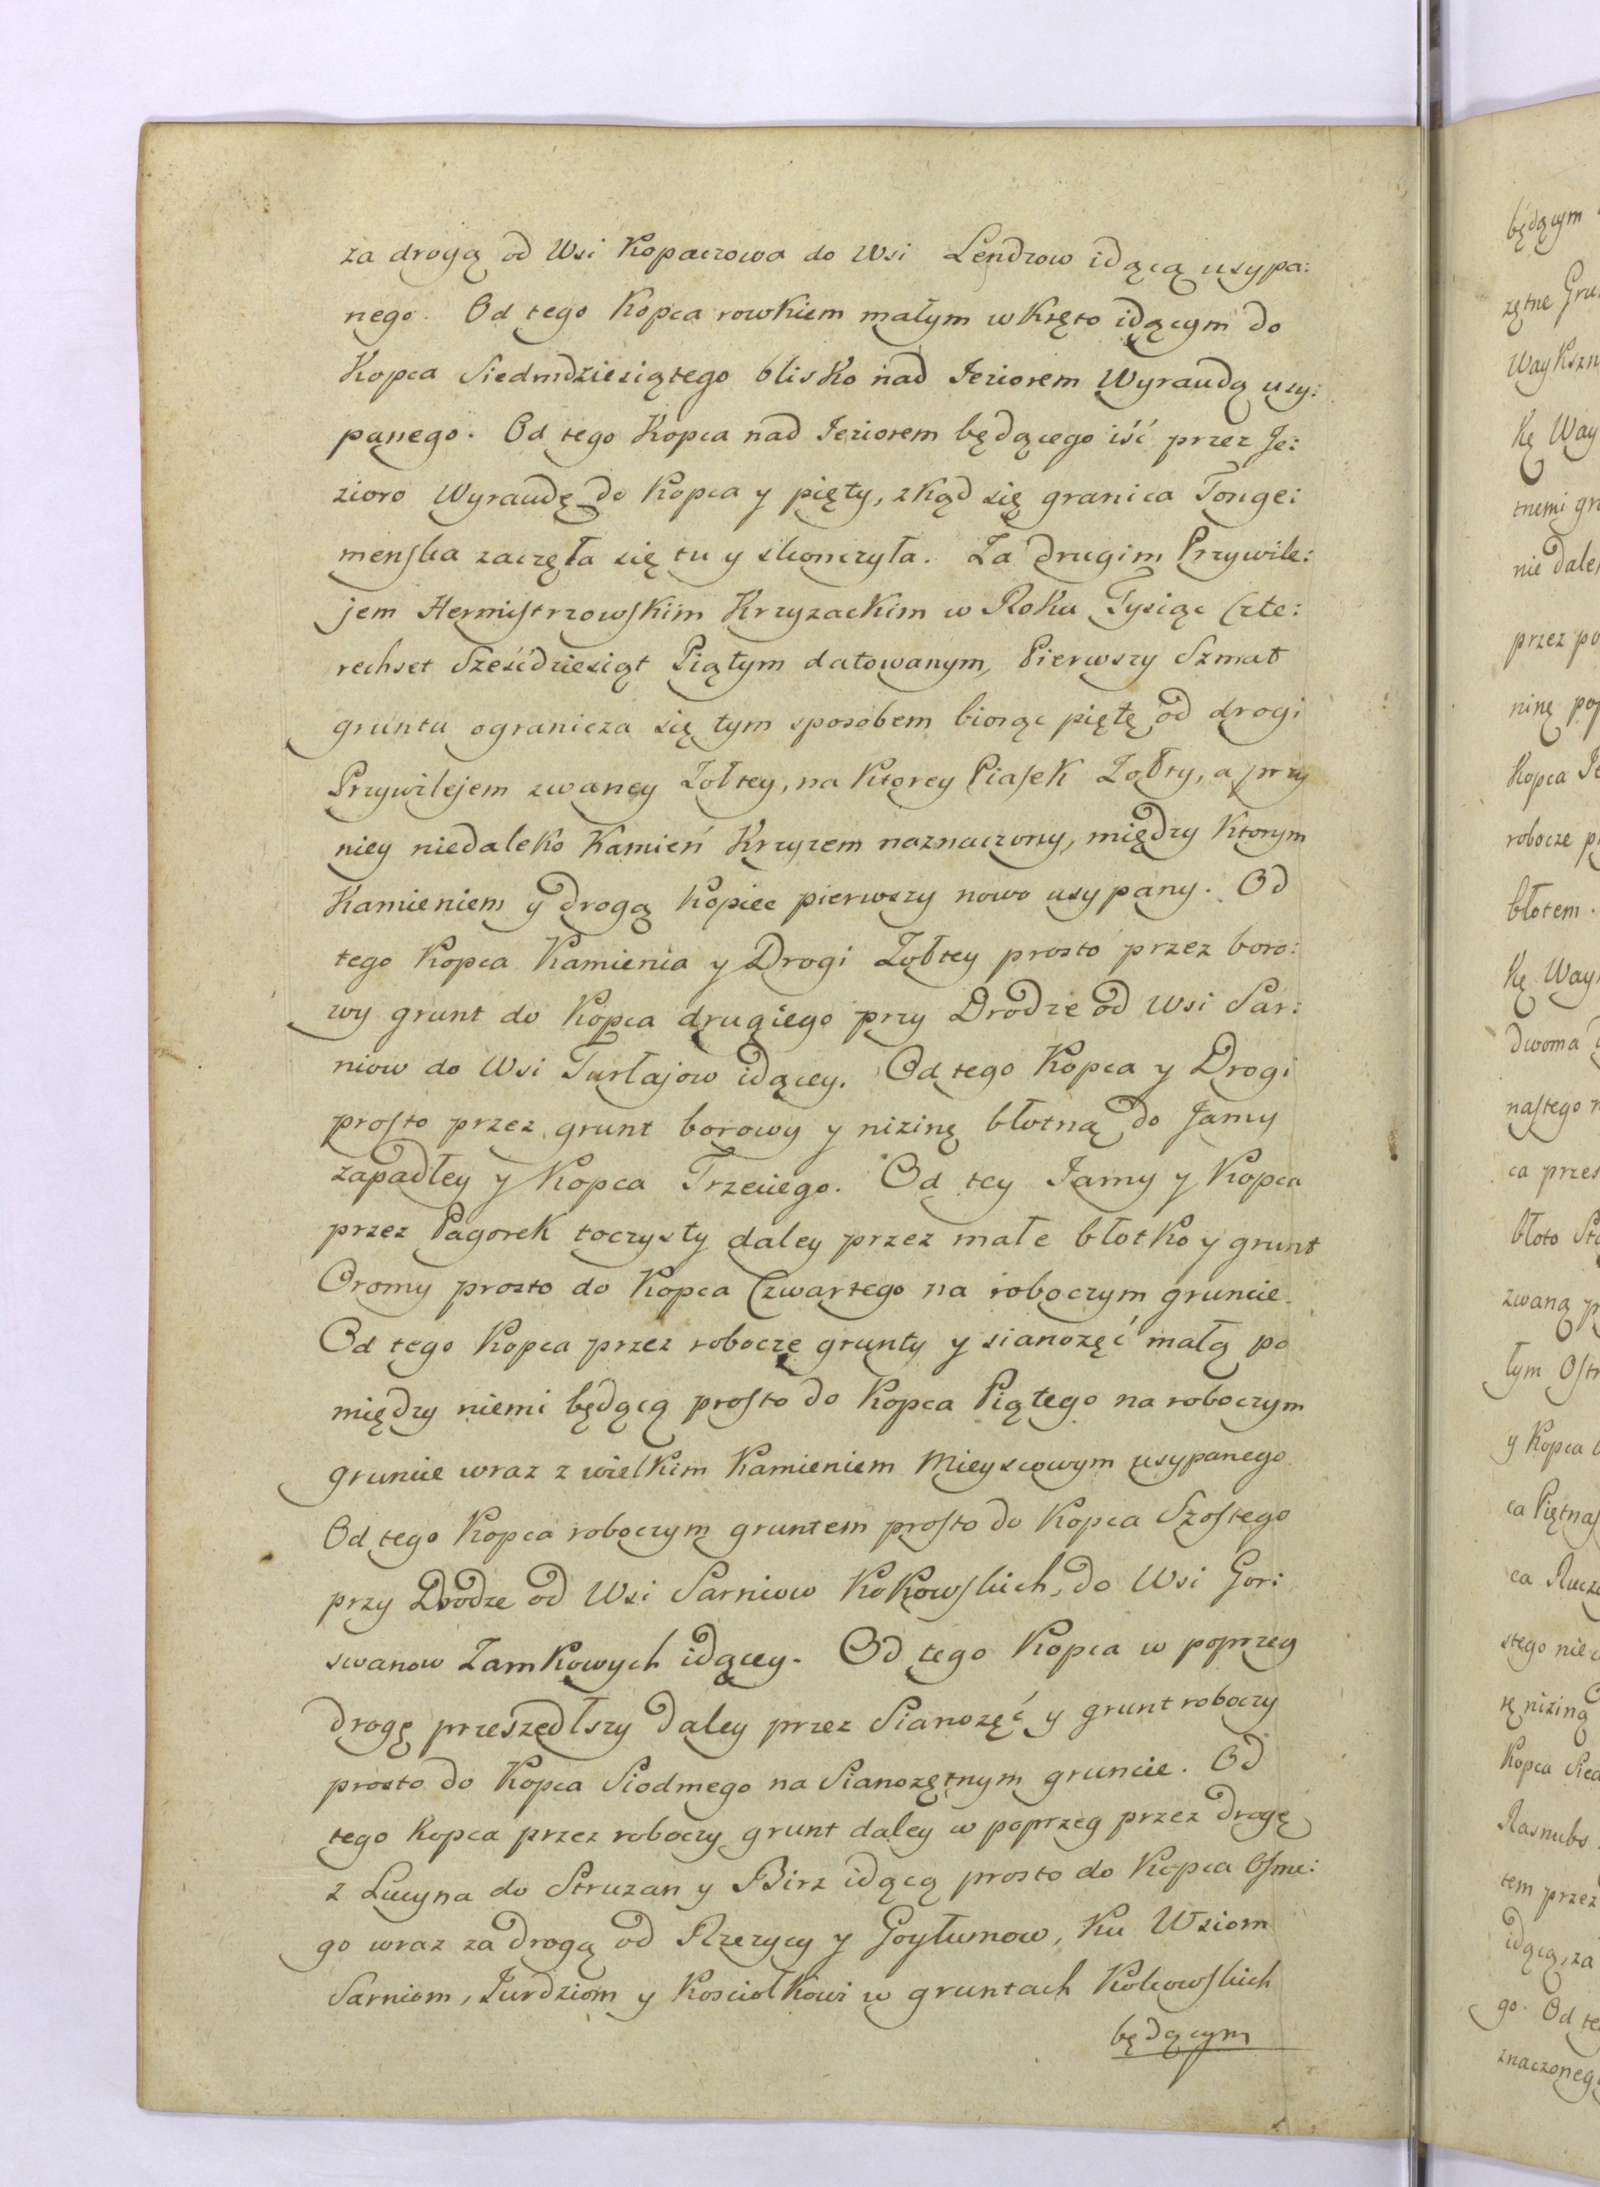 za drogą od Wsi Kopaczowa do Wsi Lendzow idącą usypa:
nego. Od tego Kopca rowkiem małym w kręto idącym do
Kopca Siedmdziesiątego blisko nad Jeziorem Wyraudą usy:
panego. Od tego Kopca nad Jeziorem będącego iść przez Je:
zioro Wyraudę do Kopca y pięty, zkąd się granica Tonge:
menska zaczęła się tu y skonczyła. Za drugim Przywile:
jem Hermistrzowskim Krzyzackim w Roku Tysiąc Czte:
rechset Sześćdziesiąt Piątym datowanym, Pierwszy Szmat
gruntu ogranicza się tym sposobem biorąc piętę od drogi
Przywilejem zwaney Zołtey, na Ktorey Piasek Zołty, a przy
niey niedaleko Kamień Krzyzem naznaczony, między Ktorym
Kamieniem y drogą Kopiec pierwszy nowo usypany. Od
tego Kopca Kamienia y Drogi Zołtey prosto przez boro:
wy grunt do Kopca drugiego przy Drodze od Wsi Sar:
niow do Wsi Turłajow idącey. Od tego Kopca y Drogi
prosto przez grunt borowy y nizinę błotną do Jamy
zapadłey y Kopca Trzeciego. Od tey Jamy y Kopca
przez Pagorek toczysty daley przez małe błotko y grunt
Oromy prosto do Kopca Czwartego na roboczym gruncie.
Od tego Kopca przez robocze grunty y sianozęć małą po
między niemi będącą prosto do Kopca Piątego na roboczym
gruncie wraz z wielkim Kamieniem Mieyscowym usypanego.
Od tego Kopca roboczym gruntem prosto do Kopca Szostego
przy Drodze od Wsi Sarniow Kokowskich, do Wsi Gori
swanow Zamkowych idącey. Od tego Kopca w poprzeg
drogę przeszedłszy daley przez Sianozęć y grunt roboczy
prosto do Kopca Siodmego na Sianozętnym gruncie. Od
tego Kopca przez roboczy grunt daley w poprzeg przez drogę
z Lucyna do Struzan y Birz idącą prosto do Kopca Osme:
go wraz za drogą od Rzezycy y Goyłumow, Ku Wsiom
Sarniom, Jurdziom y Kosciołkowi w gruntach Kokowskich
będącym
będącym
zętne
Kę Way
nie
przez
Kopca
robocze
błotem.
Kę Way
dwoma
ca
błoto
zwaną
y Kopca
ca
ca
nizinę
Kopca
tem przez
idącą, za
go. Od